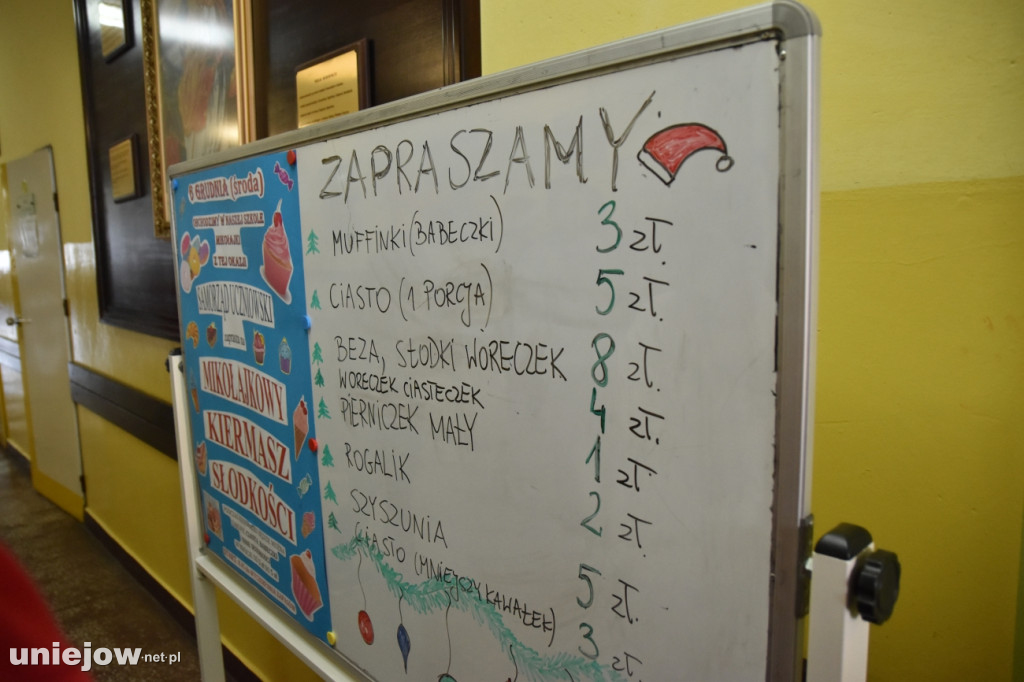 ZAPRASZAMY
MUFFINKI (BABECZKI) 3 zł.
CIASTO (1 PORCJA) 5 zł.
BEZA, SŁODKI WORECZEK 8 zł.
WORECZEK CIASTECZEK 4 zł.
PIERNICZEK MAŁY 1 zł
ROGALIK 2 zł.
SZYSZUNIA 5 zł.
CIASTO (MNIEJSZY KAWAŁEK) 3 zł
6 GRUDNIA (środa)
OBCHODZIMY W NASZEJ SZKOLE
MIKOŁAJKI
Z TEJ OKAZJI
SAMORZĄD UCZNIOWSKI
zaprasza na
MIKOŁAJKOWY
KIERMASZ
SŁODKOŚCI
uniejow.net.pl